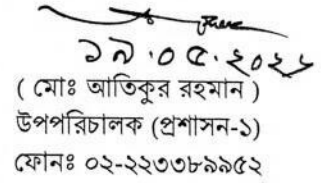 ১৯.০৫.২০২২
( মোঃ আতিকুর রহমান )
উপপরিচালক (প্রশাসন-১)
ফোনঃ ০২-২২৩৩৮৯৯৫২